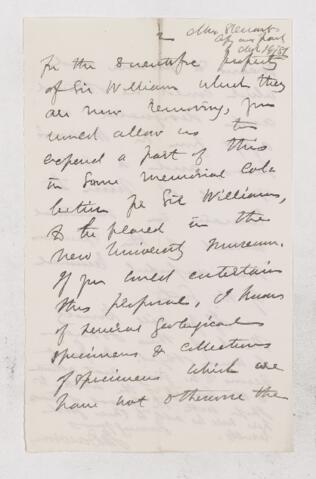 2
Mrs Stewart
for the Scientific property
of Sir William which they
are now removing, you
would allow us to
expend a part of this
in some memorial colle
lection for Sir William,
to be placed in the
new University Museum.
If you could entertain
this proposal, I know
of several geological
specimens & collections
of specimens which we
have not otherwise the